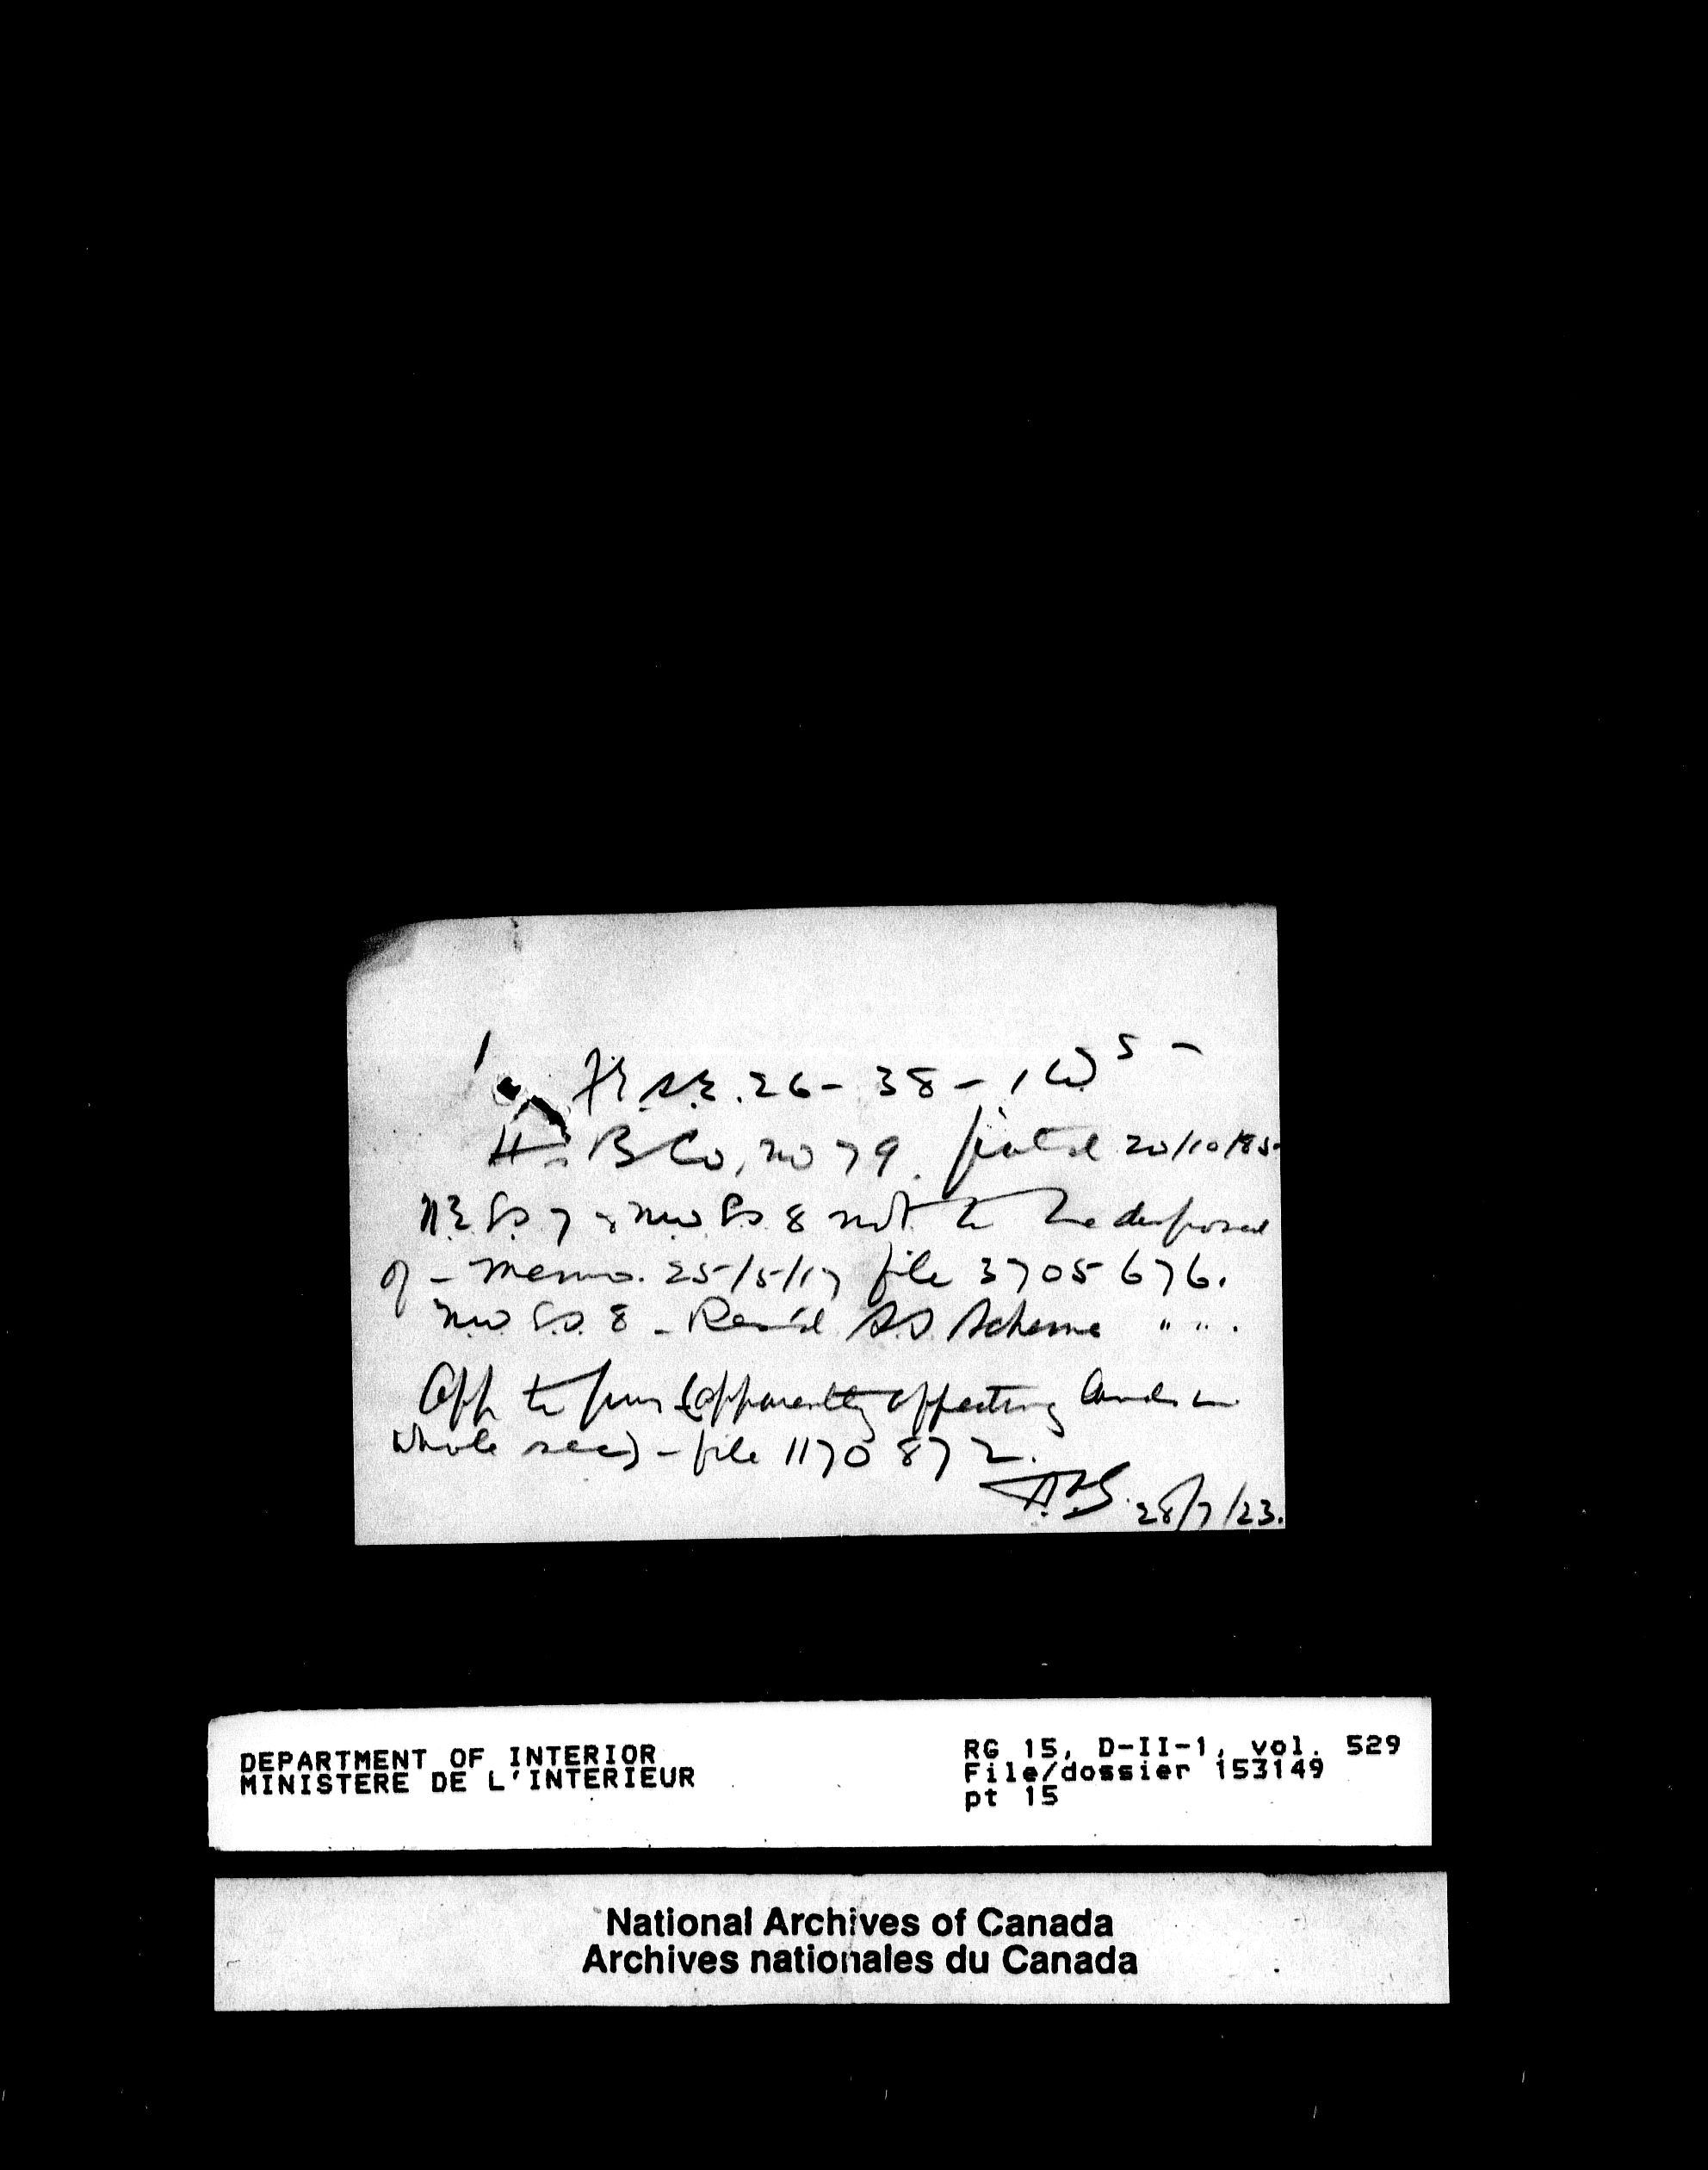 Fr. S.E. 26 - 38 - 1 W 5 -
H. B Co, no 79. 20/10/85
N.E. LS. 7 & NW LS. 8 not to be disposed
of - memo. 25/5/17 file 3705676.
NW LS. 8 - Res'd SS Scheme " " .
App to pur (apparently affecting lands in
whole sec) - file 1170872.
28/7/23.
DEPARTMENT OF INTERIOR
MINISTERE DE L'INTERIEUR
RG 15, D-II-1, vol. 529
File/dossier 153149
pt 15
National Archives of Canada
Archives nationales du Canada